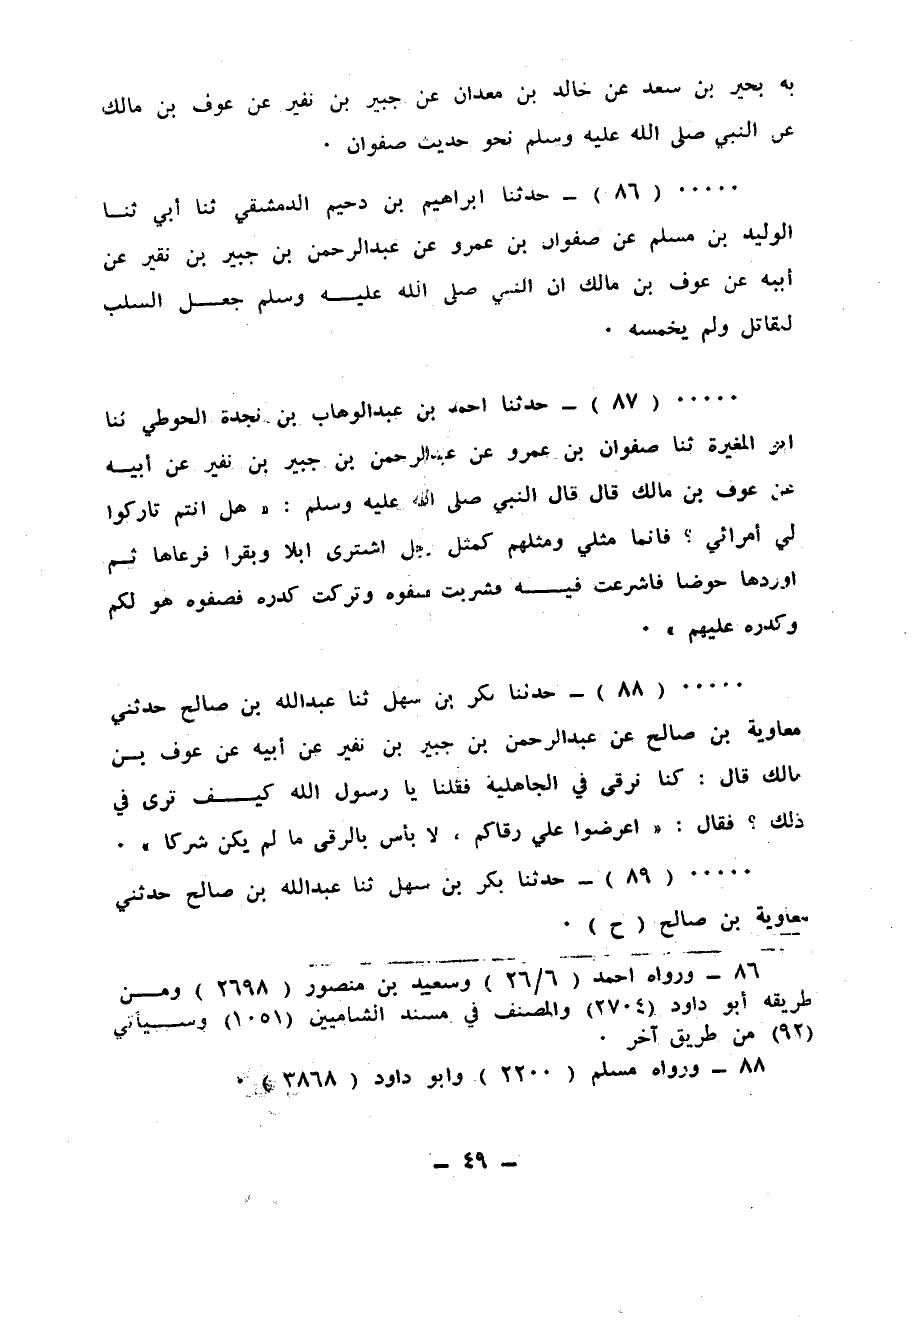 به بحير بن سعد عن خالد بن معدان عن جبير بن نفير عن عوف بن مالك
عن النبي صلى الله عليه وسلم نحو حديث صفوان ٠
٠٠٠٠٠ ( ٨٦ ) ــ حدثنا ابراهيم بن دحيم الدمشقي ثنا أبي ثنــا
الوليد بن مسلم عن صفوان بن عمرو عن عبدالرحمن بن جبير بن نقير عن
أبيه عن عوف بن مالك ان النبي صلى الله عليــه وسلم جعــل السلب
للقاتل ولم يخمسه ٠
٠٠٠٠٠ ( ٨٧ ) ــ حدثنا احمد بن عبدالوهاب بن نجدة الحوطي ثنا
ابو المغيرة ثنا صفوان بن عمرو عن عبدالرحمن بن جبير بن نفير عن أبيــه
عن عوف بن مالك قال قال النبي صلى الله عليه وسلم : « هل انتم تاركوا
لي أمرائي ؟ فانما مثلي ومثلهم كمثل رجل اشترى ابلا وبقرا فرعاها ثــم
اوردها حوضا فاشرعت فيــه فشربت صفوه وتركت كدره فصفوه هو لكم
وكدره عليهم » ٠
٠٠٠٠٠ ( ٨٨ ) ــ حدثنا بكر بن سهل ثنا عبدالله بن صالح حدثني
معاوية بن صالح عن عبدالرحمن بن جبير بن نفير عن أبيه عن عوف بــن
مالك قال : كنا نرقى في الجاهلية فقلنا يا رسول الله كيــف ترى في
ذلك ؟ فقال : « اعرضوا علي رقاكم ، لا بأس بالرقى ما لم يكن شركا » ٠
٠٠٠٠٠ ( ٨٩ ) ــ حدثنا بكر بن سهل ثنا عبدالله بن صالح حدثني
معاوية بن صالح ( ح ) ٠
٨٦ ــ ورواه احمد ( ٢٦/٦ ) وسعيد بن منصور ( ٢٦٩٨ ) ومــن
طريقه أبو داود (٢٧٠٤) والمصنف في مسند الشاميين (١٠٥١) وســيأتي
(٩٢) من طريق آخر ٠
٨٨ ــ ورواه مسلم ( ٢٢٠٠ ) وابو داود ( ٣٨٦٨ ) ٠
ــ ٤٩ ــ